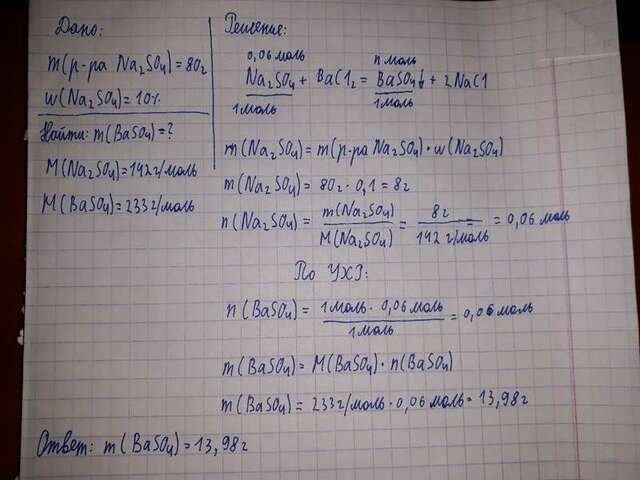 Дано:
m(р-ра Na₂SO₄) = 80г
w(Na₂SO₄) = 10%
Найти: m(BaSO₄) = ?
M(Na₂SO₄) = 142г/моль
M(BaSO₄) = 233г/моль
Решение:
0,06 моль n моль
Na₂SO₄ + BaCl₂ = BaSO₄↓ + 2NaCl
1моль 1моль
m(Na₂SO₄) = m(р-ра Na₂SO₄) · w(Na₂SO₄)
m(Na₂SO₄) = 80г · 0,1 = 8г
n(Na₂SO₄) = m(Na₂SO₄) / M(Na₂SO₄) = 8г / 142 г/моль = 0,06 моль
По УХЗ:
n(BaSO₄) = 1моль · 0,06 моль / 1моль = 0,06 моль
m(BaSO₄) = M(BaSO₄) · n(BaSO₄)
m(BaSO₄) = 233г/моль · 0,06 моль = 13,98г
Ответ: m(BaSO₄) = 13,98г